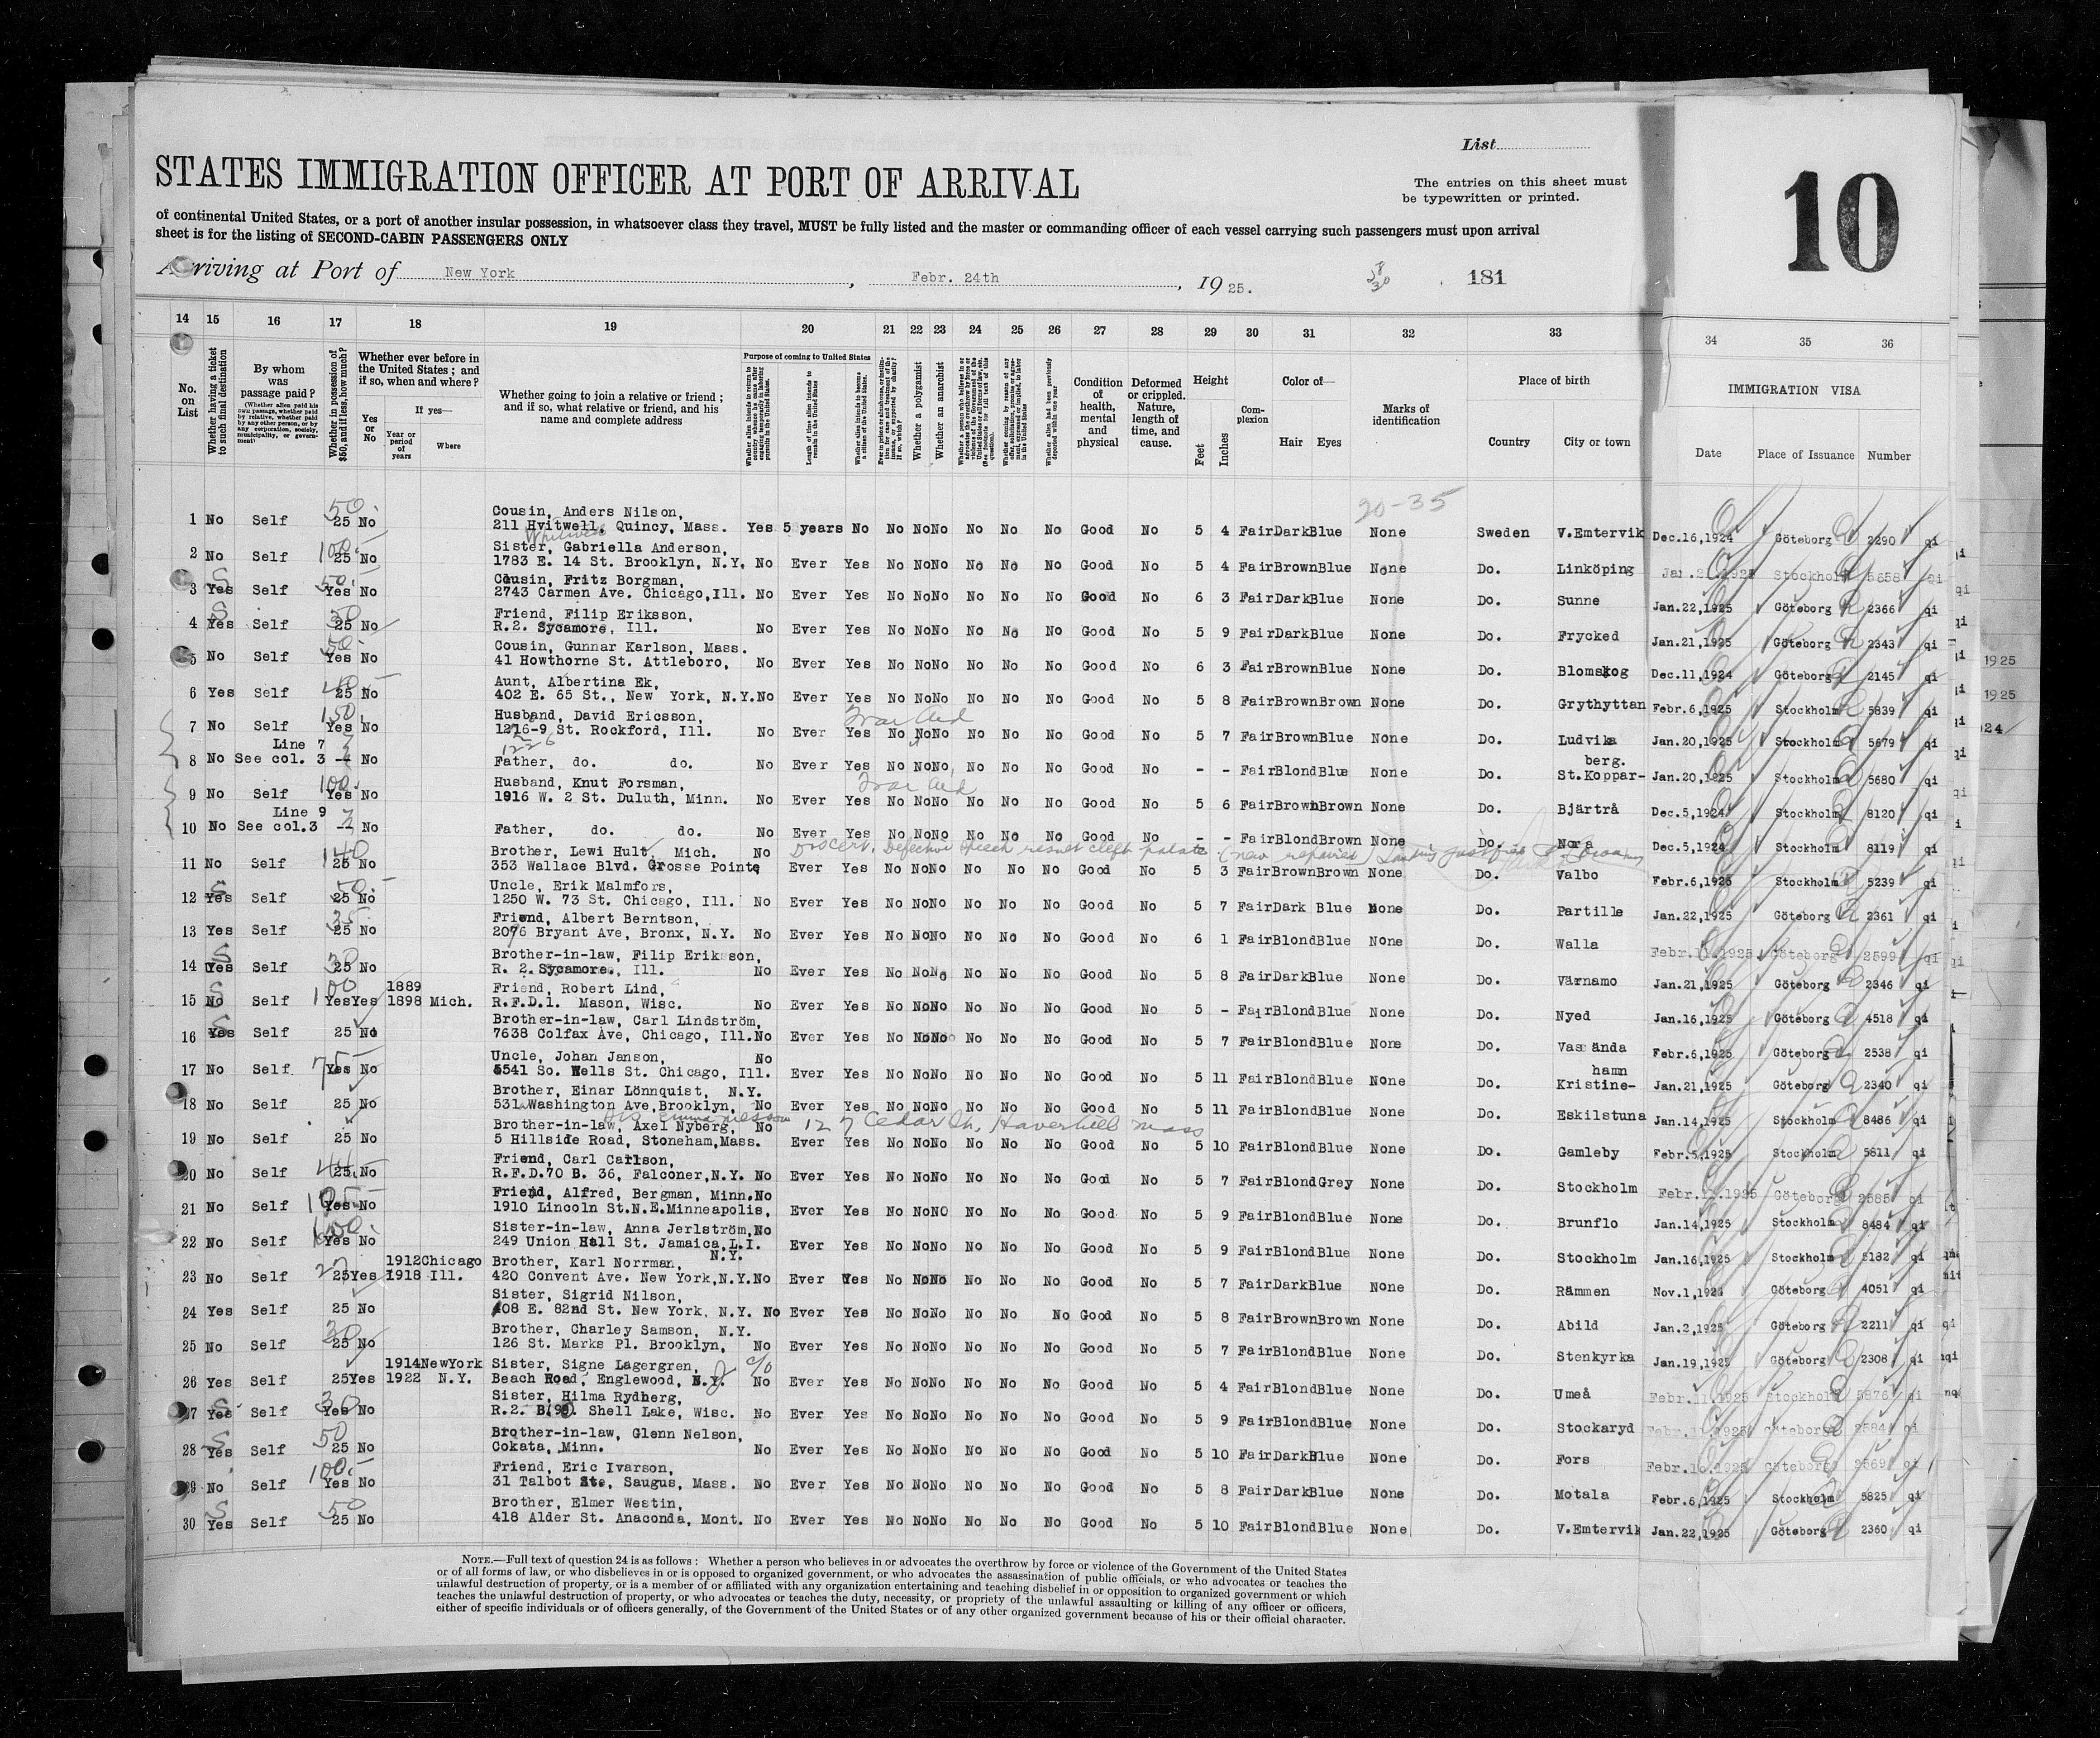 List
STATES IMMIGRATION OFFICER AT PORT OF ARRIVAL
The entries on this sheet must
be typewritten or printed.
10
of continental United States, or a port of another insular possession, in whatsoever class they travel, MUST be fully listed and the master or commanding officer of each vessel carrying such passengers must upon arrival
sheet is for the listing of SECOND-CABIN PASSENGERS ONLY
Arriving at Port of New York, Febr. 24th, 1925. 181
14 15 16 17 18 19 20 21 22 23 24 25 26 27 28 29 30 31 32 33 34 35 36
No. on List
Whether having a ticket to such final destination
By whom was passage paid?
(Whether alien paid his own passage, whether paid by relative, whether paid by any other person, or by any corporation, society, municipality, or government)
Whether in possession of $50, and if less, how much?
Whether ever before in the United States; and if so, when and where?
Yes or No
If yes—
Year or period of years
Where
Whether going to join a relative or friend; and if so, what relative or friend, and his name and complete address
Purpose of coming to United States
Length of time alien intends to remain in the United States
Whether alien intends to become a citizen of the United States
Whether a polygamist
Whether an anarchist
Condition of health, mental and physical
Deformed or crippled. Nature, length of time, and cause.
Height
Feet
Inches
Complexion
Color of—
Hair
Eyes
Marks of identification
Place of birth
Country
City or town
IMMIGRATION VISA
Date
Place of Issuance
Number
20-35
1 No Self 25 50 No Cousin, Anders Nilson,
211 Hvitwell, Quincy, Mass. Yes 5 years No No No No No No No Good No 5 4 Fair Dark Blue None Sweden V.Emtervik Dec.16,1924 Göteborg 2290 qi
2 No Self 25 100 No Sister, Gabriella Anderson,
1783 E. 14 St. Brooklyn, N.Y. No Ever Yes No No No No No No Good No 5 4 Fair Brown Blue None Do. Linköping Stockholm 5658 qi
3 Yes Self Yes 50 No Cousin, Fritz Borgman,
2743 Carmen Ave. Chicago, Ill. No Ever Yes No No No No No No Good No 6 3 Fair Dark Blue None Do. Sunne Jan.22,1925 Göteborg 2366 qi
4 Yes Self 25 No Friend, Filip Eriksson,
R.2. Sycamore, Ill. No Ever Yes No No No No No No Good No 5 9 Fair Dark Blue None Do. Frycked Jan.21,1925 Göteborg 2343 qi
5 No Self Yes 50 No Cousin, Gunnar Karlson, Mass.
41 Howthorne St. Attleboro, No Ever Yes No No No No No No Good No 6 3 Fair Brown Blue None Do. Blomskog Dec.11,1924 Göteborg 2145 qi
6 Yes Self 25 No Aunt, Albertina Ek,
402 E. 65 St., New York, N.Y. No Ever Yes No No No No No No Good No 5 8 Fair Brown Brown None Do. Grythyttan Febr.6,1925 Stockholm 5839 qi
7 No Self Yes 150 No Husband, David Ericsson,
1216-9 St. Rockford, Ill. No Ever Yes No No No No No No Good No 5 7 Fair Brown Blue None Do. Ludvika Jan.20,1925 Stockholm 5679 qi
1226
Line 7
8 No See col. 3 — No Father, do. do. No Ever Yes No No No No No No Good No - - Fair Blond Blue None Do. St.Koppar-berg. Jan.20,1925 Stockholm 5680 qi
9 No Self Yes 100 No Husband, Knut Forsman,
1916 W. 2 St. Duluth, Minn. No Ever Yes No No No No No No Good No 5 6 Fair Brown Brown None Do. Bjärtrå Dec.5,1924 Stockholm 8120 qi
Line 9
10 No See col.3 — No Father, do. do. No Ever Yes No No No No No No Good No - - Fair Blond Brown None Do. Nora Dec.5,1924 Stockholm 8119 qi
11 No Self 25 140 No Brother, Lewi Hult, Mich. No
353 Wallace Blvd. Grosse Pointe, Ever Yes No No No No No No Good No 5 3 Fair Brown Brown None Do. Valbo Febr.6,1925 Stockholm 5239 qi
12 Yes Self 25 50 No Uncle, Erik Malmfors,
1250 W. 73 St. Chicago, Ill. No Ever Yes No No No No No No Good No 5 7 Fair Dark Blue None Do. Partille Jan.22,1925 Göteborg 2361 qi
13 Yes Self 25 35 No Friend, Albert Berntson,
2076 Bryant Ave, Bronx, N.Y. No Ever Yes No No No No No No Good No 6 1 Fair Blond Blue None Do. Walla Göteborg 2599 qi
14 Yes Self 25 30 No Brother-in-law, Filip Erikson,
R. 2. Sycamore, Ill. No Ever Yes No No No No No No Good No 5 8 Fair Dark Blue None Do. Värnamo Jan.21,1925 Göteborg 2346 qi
15 No Self Yes 100 Yes 1889 1898 Mich. Friend, Robert Lind,
R.F.D.1. Mason, Wisc. No Ever Yes No No No No No No Good No 5 - Fair Blond Blue None Do. Nyed Jan.16,1925 Göteborg 4518 qi
16 Yes Self 25 No Brother-in-law, Carl Lindström,
7638 Colfax Ave, Chicago, Ill. No Ever Yes No No No No No No Good No 5 7 Fair Blond Blue None Do. Vase ända Febr.6,1925 Göteborg 2538 qi
17 No Self Yes 75 No Uncle, Johan Janson, No
5541 So. Wells St. Chicago, Ill. Ever Yes No No No No No No Good No 5 11 Fair Blond Blue None Do. Kristine-hamn Jan.21,1925 Göteborg 2340 qi
18 No Self 25 No Brother, Einar Lönnquist, N.Y.
531 Washington Ave, Brooklyn, No Ever Yes No No No No No No Good No 5 11 Fair Blond Blue None Do. Eskilstuna Jan.14,1925 Stockholm 8486 qi
127 Cedar St, Haverhill Mass
19 No Self 25 No Brother-in-law, Axel Nyberg, No
5 Hillside Road, Stoneham, Mass. Ever Yes No No No No No No Good No 5 10 Fair Blond Blue None Do. Gamleby Febr.5,1925 Stockholm 5811 qi
20 No Self 25 No Friend, Carl Carlson,
R.F.D.70 B. 36, Falconer, N.Y. No Ever Yes No No No No No No Good No 5 7 Fair Blond Grey None Do. Stockholm Göteborg 2585 qi
21 No Self Yes No Friend, Alfred, Bergman, Minn. No
1910 Lincoln St.N.E.Minneapolis, Ever Yes No No No No No No Good No 5 9 Fair Blond Blue None Do. Brunflo Jan.14,1925 Stockholm 8484 qi
22 No Self Yes No Sister-in-law, Anna Jerlström, No
249 Union Hall St. Jamaica, L.I. N.Y. Ever Yes No No No No No No Good No 5 9 Fair Blond Blue None Do. Stockholm Jan.16,1925 Stockholm 5182 qi
23 No Self 25 Yes 1912 1918 Chicago Ill. Brother, Karl Norrman,
420 Convent Ave. New York, N.Y. No Ever Yes No No No No No No Good No 5 7 Fair Dark Blue None Do. Rämmen Nov.1,192 Göteborg 4051 qi
24 Yes Self 25 No Sister, Sigrid Nilson,
408 E. 82nd St. New York, N.Y. No Ever Yes No No No No No No Good No 5 8 Fair Brown Brown None Do. Abild Jan.2,1925 Göteborg 2211 qi
25 No Self 25 30 No Brother, Charley Samson, N.Y.
126 St. Marks Pl. Brooklyn, No Ever Yes No No No No No No Good No 5 7 Fair Blond Blue None Do. Stenkyrka Jan.19,1925 Göteborg 2308 qi
26 Yes Self 25 Yes 1914 1922 NewYork N.Y. Sister, Signe Lagergren, c/o
Beach Road, Englewood, N.J. No Ever Yes No No No No No No Good No 5 4 Fair Blond Blue None Do. Umeå Febr.11.1925 Stockholm 5876 qi
27 Yes Self Yes 30 No Sister, Hilma Rydberg,
R.2. B.99. Shell Lake, Wisc. No Ever Yes No No No No No No Good No 5 9 Fair Blond Blue None Do. Stockaryd Göteborg 2584 qi
28 Yes Self 25 50 No Brother-in-law, Glenn Nelson,
Cokata, Minn. No Ever Yes No No No No No No Good No 5 10 Fair Dark Blue None Do. Fors Febr.10.1925 Göteborg 2569 qi
29 No Self Yes 100 No Friend, Eric Ivarson,
31 Talbot Ste, Saugus, Mass. No Ever Yes No No No No No No Good No 5 8 Fair Dark Blue None Do. Motala Febr.6,1925 Stockholm 5825 qi
30 Yes Self 25 50 No Brother, Elmer Westin,
418 Alder St. Anaconda, Mont. No Ever Yes No No No No No No Good No 5 10 Fair Blond Blue None Do. V.Emtervik Jan.22,1925 Göteborg 2360 qi
NOTE.—Full text of question 24 is as follows: Whether a person who believes in or advocates the overthrow by force or violence of the Government of the United States
or of all forms of law, or who disbelieves in or is opposed to organized government, or who advocates the assassination of public officials, or who advocates or teaches the
unlawful destruction of property, or is a member of or affiliated with any organization entertaining and teaching disbelief in or opposition to organized government or which
teaches the unlawful destruction of property, or who advocates or teaches the duty, necessity, or propriety of the unlawful assaulting or killing of any officer or officers,
either of specific individuals or of officers generally, of the Government of the United States or of any other organized government because of his or their official character.